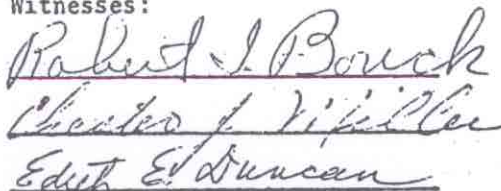 Witnesses:
Robert I. Bouck
Chester J.
Edith E. Duncan